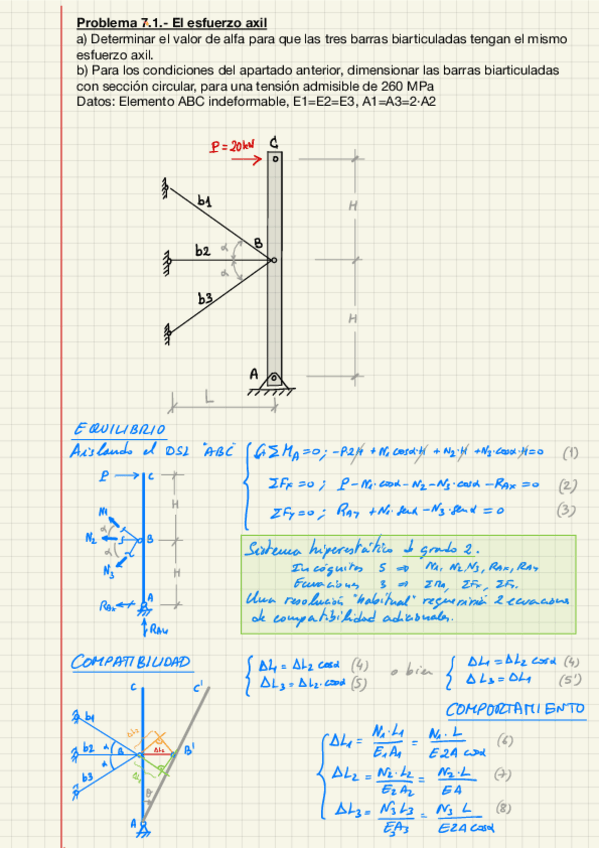 Problema 7.1.- El esfuerzo axil
a) Determinar el valor de alfa para que las tres barras biarticuladas tengan el mismo
esfuerzo axil.
b) Para los condiciones del apartado anterior, dimensionar las barras biarticuladas
con sección circular, para una tensión admisible de 260 MPa
Datos: Elemento ABC indeformable, E1=E2=E3, A1=A3=2·A2
P=20kN
C
b1
H
b2
α
B
α
b3
H
A
L
EQUILIBRIO
Aislando el DSL "ABC"
ΣM_A=0; -P·2H + N₁ cosα·H + N₂·H + N₃·cosα·H=0 (1)
ΣFx=0; P-N₁·cosα-N₂-N₃·cosα-RAx=0 (2)
ΣFy=0; RAy+N₁·senα-N₃·senα=0 (3)
P
C
H
N₁
α
N₂
B
α
N₃
H
A
RAx
RAy
Sistema hiperestático de grado 2.
Incógnitas 5 ⇒ N₁, N₂, N₃, RAx, RAy
Ecuaciones 3 ⇒ ΣM, ΣFx, ΣFy.
Una resolución "habitual" requeriría 2 ecuaciones
de compatibilidad adicionales.
COMPATIBILIDAD
ΔL₁=ΔL₂ cosα (4)
ΔL₃=ΔL₂·cosα (5)
o bien
ΔL₁=ΔL₂ cosα (4)
ΔL₃=ΔL₁ (5')
C
C'
b1
b2
α
B
α
ΔL₂
B'
b3
θ
A
COMPORTAMIENTO
ΔL₁= N₁·L₁ / E₁A₁ = N₁·L / E2A cosα (6)
ΔL₂= N₂·L₂ / E₂A₂ = N₂·L / EA (7)
ΔL₃= N₃L₃ / E₃A₃ = N₃ L / E2A cosα (8)